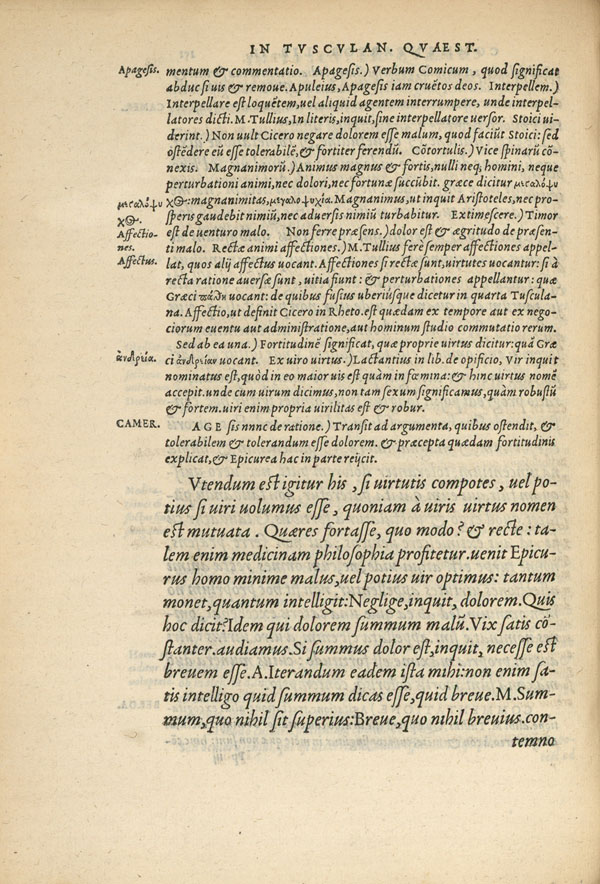 IN TVSCVLAN. QVAEST.
Apagesis. mentum & commentatio. Apagesis.) Verbum Comicum, quod significat
abduc si uis & remoue. Apuleius, Apagesis iam cruẽtos deos. Interpellem.)
Interpellare est loquẽtem, uel aliquid agentem interrumpere, unde interpel-
latores dicti. M. Tullius, In literis, inquit, sine interpellatore uersor. Stoici ui-
derint.) Non uult Cicero negare dolorem esse malum, quod faciũt Stoici: sed
ostẽdere eũ esse tolerabilẽ, & fortiter ferendũ. Cõtortulis.) Vice spinarũ cõ-
nexis. Magnanimorũ.) Animus magnus & fortis, nulli neq; homini, neque
perturbationi animi, nec dolori, nec fortunæ succũbit. græce dicitur μεγαλόψυ
μεγαλόψυ χος: magnanimitas, μεγαλοψυχία. Magnanimus, ut inquit Aristoteles, nec pro-
χος. speris gaudebit nimiũ, nec aduersis nimiũ turbabitur. Extimescere.) Timor
Affectio- est de uenturo malo. Non ferre præsens.) dolor est & ægritudo de præsen-
nes. ti malo. Rectæ animi affectiones.) M. Tullius ferè semper affectiones appel-
Affectus. lat, quos alij affectus uocant. Affectiones si rectæ sunt, uirtutes uocantur: si à
recta ratione auersæ sunt, uitia fiunt: & perturbationes appellantur: quæ
Græci πάθη uocant: de quibus fusius uberiúsque dicetur in quarta Tuscula-
na. Affectio, ut definit Cicero in Rheto. est quædam ex tempore aut ex nego-
ciorum euentu aut administratione, aut hominum studio commutatio rerum.
Sed ab ea una.) Fortitudinẽ significat, quæ proprie uirtus dicitur: quã Græ-
ἀνδρεία. ci ἀνδρείαν uocent. Ex uiro uirtus.) Lactantius in lib. de opificio, Vir inquit
nominatus est, quòd in eo maior uis est quàm in fœmina: & hinc uirtus nomẽ
accepit. unde cum uirum dicimus, non tam sexum significamus, quàm robustũ
& fortem. uiri enim propria uirilitas est & robur.
CAMER. AGE sis nnnc de ratione.) Transit ad argumenta, quibus ostendit, &
tolerabilem & tolerandum esse dolorem. & præcepta quædam fortitudinis
explicat, & Epicurea hac in parte reijcit.
Vtendum est igitur his, si uirtutis compotes, uel po-
tius si uiri uolumus esse, quoniam à uiris uirtus nomen
est mutuata. Quæres fortasse, quo modo? & recte: ta-
lem enim medicinam philosophia profitetur. uenit Epicu-
rus homo minime malus, uel potius uir optimus: tantum
monet, quantum intelligit: Neglige, inquit, dolorem. Quis
hoc dicit? Idem qui dolorem summum malũ. Vix satis cõ-
stanter. audiamus. Si summus dolor est, inquit, necesse est
breuem esse. A. Iterandum eadem ista mihi: non enim sa-
tis intelligo quid summum dicas esse, quid breue. M. Sum-
mum, quo nihil sit superius: Breue, quo nihil breuius. con-
temno